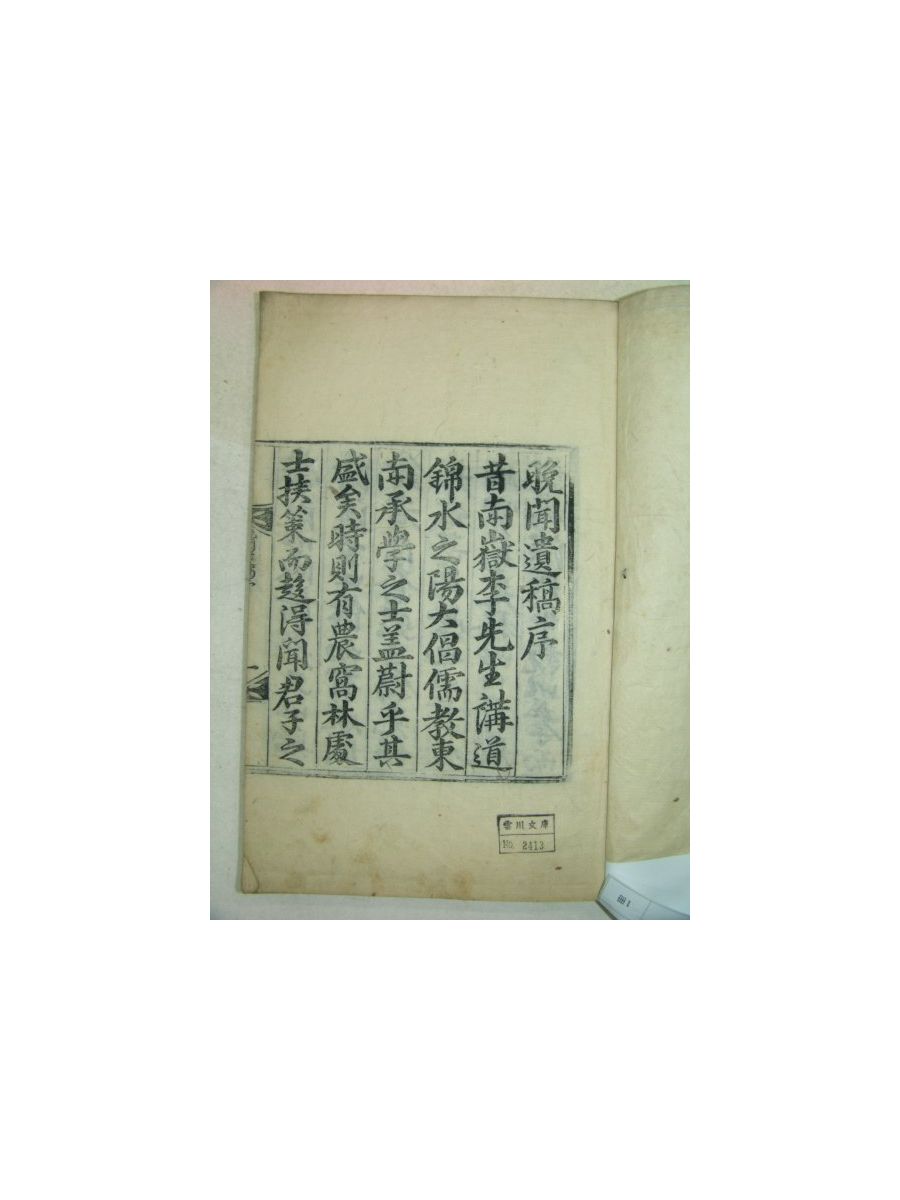 晩聞遺稿序
昔南嶽李先生講道
錦水之陽大倡儒教東
南承學之士盖蔚乎其
盛矣時則有農窩林處
士扶策而趍得聞君子之
雲川文庫
No. 2413
冊 1